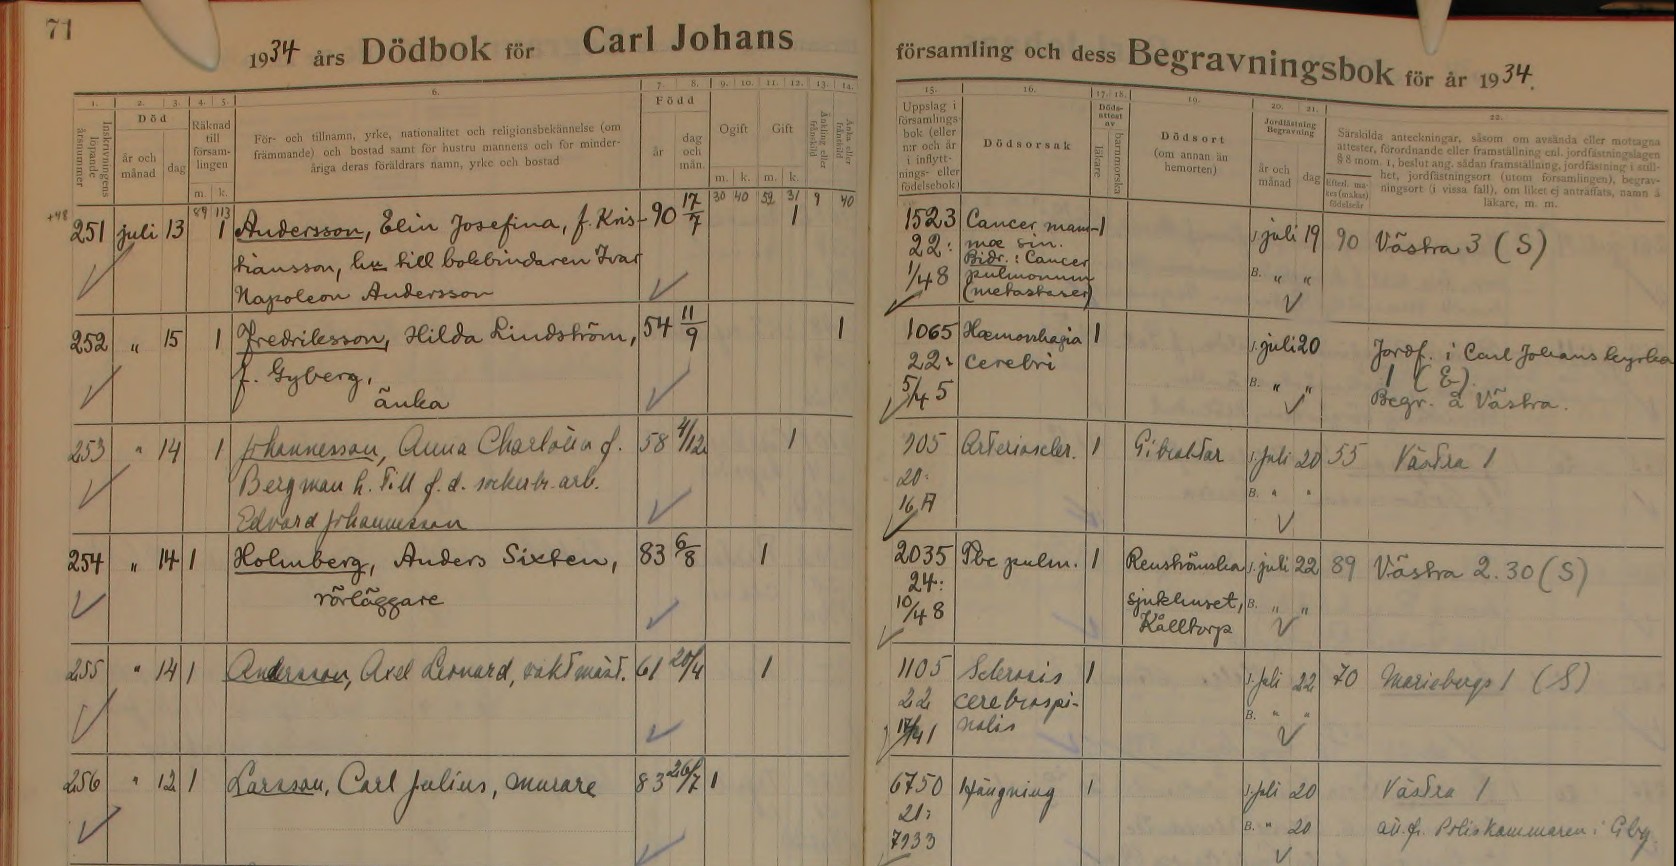 71
1934 års Dödbok för Carl Johans församling och dess Begravningsbok för år 1934.
1. 2. 3. 4. 5. 6. 7. 8. 9. 10. 11. 12. 13. 14. 15. 16. 17. 18. 19. 20. 21. 22.
Inskrivningens löpande årsnummer
Död
år och månad
dag
Räknad till församlingen
m. k.
För- och tillnamn, yrke, nationalitet och religionsbekännelse (om
främmande) och bostad samt för hustru mannens och för minder-
åriga deras föräldrars namn, yrke och bostad
Född
år
dag och mån.
Ogift
m. k.
Gift
m. k.
Änkling eller frånskild
Änka eller frånskild
Uppslag i
församlings-
bok (eller
n:r och år
i inflytt-
nings- eller
födelsebok)
Dödsorsak
Döds-
attest
av
läkare
barnmorska
Dödsort
(om annan än
hemorten)
Jordfästning
Begravning
år och månad
dag
Särskilda anteckningar, såsom om avsända eller mottagna
attester, förordnande eller framställning enl. jordfästningslagen
§ 8 mom. 1, beslut ang. sådan framställning, jordfästning i still-
het, jordfästningsort (utom församlingen), begrav-
ningsort (i vissa fall), om liket ej anträffats, namn å
läkare, m. m.
Efterl. ma-
kes (makas)
födelseår
89 113 30 40 59 31 9 40
+48
251 juli 13 1 Andersson, Elin Josefina, f. Kris- 90 17/7 1 1523 Cancer mam- 1 J. juli 19 90 Västra 3 (S)
tiansson, hu till bokbindaren Ivar 22: mæ sin.
Napoleon Andersson 1/48 Bidr.: Cancer B. " "
pulmonum
(metastaser)
252 " 15 1 Fredriksson, Hilda Lindström, 54 11/9 1 1065 Hæmorrhagia 1 J. juli 20 Jordf. i Carl Johans kyrka
f. Gyberg, 22: cerebri 1 (E).
änka 5/45 B. " " Begr. å Västra.
253 " 14 1 Johannesson, Anna Charlotta f. 58 4/12 1 905 Arterioscler. 1 Gibraltar J. juli 20 55 Västra 1
Bergman h. till f.d. sockerbr. arb. 20: B. " "
Edvard Johannesson 16 A
254 " 14 1 Holmberg, Anders Sixten, 83 6/8 1 2035 Tbc pulm. 1 Renströmska J. juli 22 89 Västra 2.30 (S)
rörläggare 24: sjukhuset, B. " "
10/48 Kålltorp
255 " 14 1 Andersson, Axel Leonard, vaktmäst. 61 20/4 1 1105 Sclerosis 1 J. juli 22 70 Mariebergs 1 (S)
22 cerebrospi- B. " "
nalis
256 " 12 1 Larsson, Carl Julius, murare 83 26/7 1 6750 Hängning 1 J. juli 20 Västra 1
21: B. " 20 att. fr. Poliskammaren i Gbg.
7933